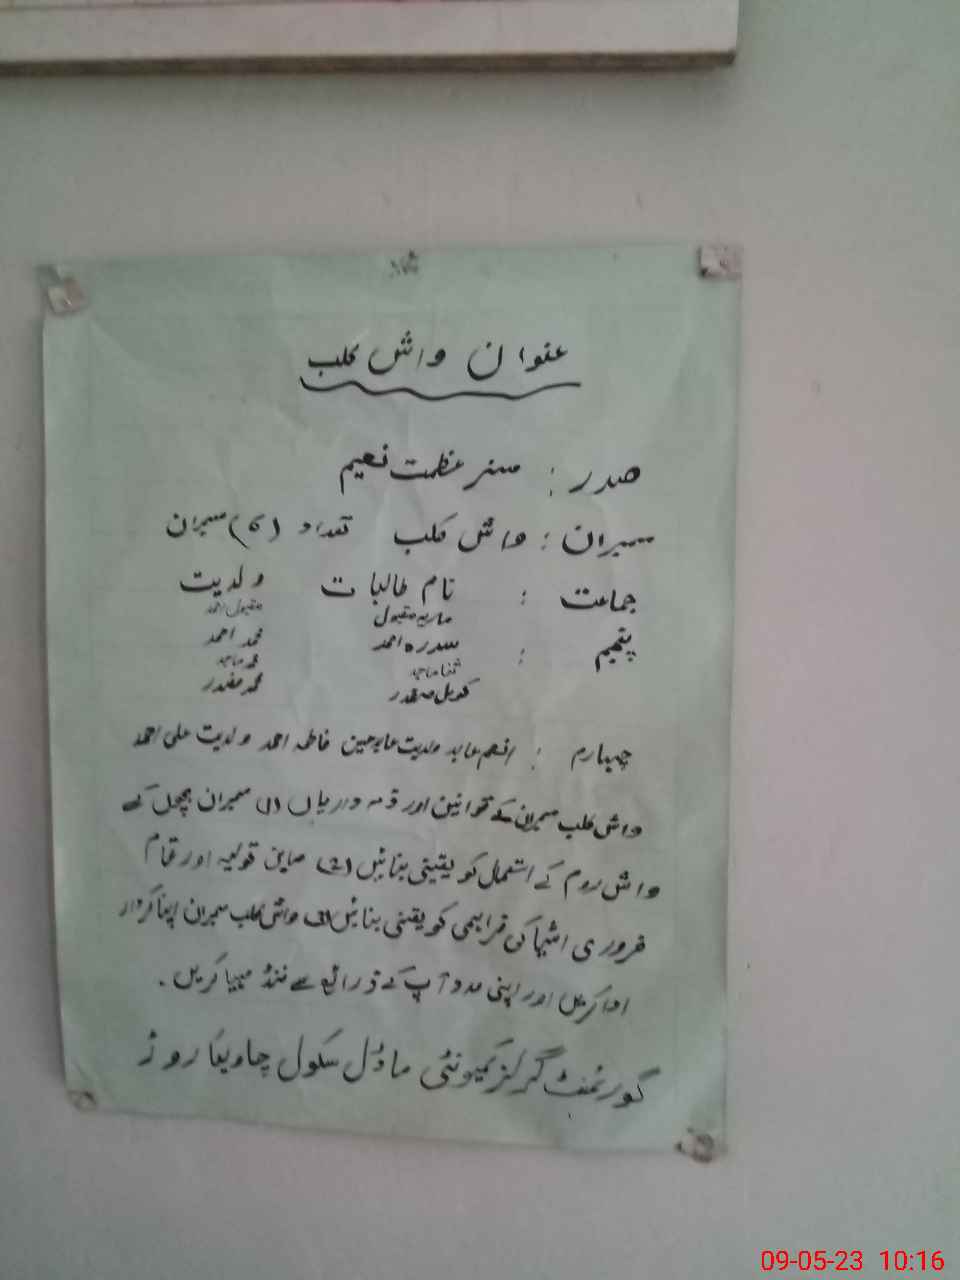 عنوان واش کلب
صدر : مسز عظمت نعیم
ممبران : واش کلب تعداد (6) ممبران
جماعت : نام طالبات ولدیت
ماریہ مقبول مقبول احمد
پنجم : سدرہ احمد محمد احمد
ثنا ماجد محمد ماجد
کومل صفدر محمد صفدر
چہارم : انعم عابد ولدیت عابد حسین فاطمہ احمد ولدیت علی احمد
واش کلب ممبران کے قوانین اور ذمہ داریاں (1) ممبران بچوں کے
واش روم کے استعمال کو یقینی بنائیں (2) صابن تولیہ اور تمام
ضروری اشیا کی فراہمی کو یقینی بنائیں (3) واش کلب ممبران اپنا کردار
ادا کریں اور اپنی مدد آپ کے ذرائع سے فنڈ مہیا کریں ۔
گورنمنٹ گرلز کمیونٹی ماڈل سکول روڈ
09-05-23 10:16